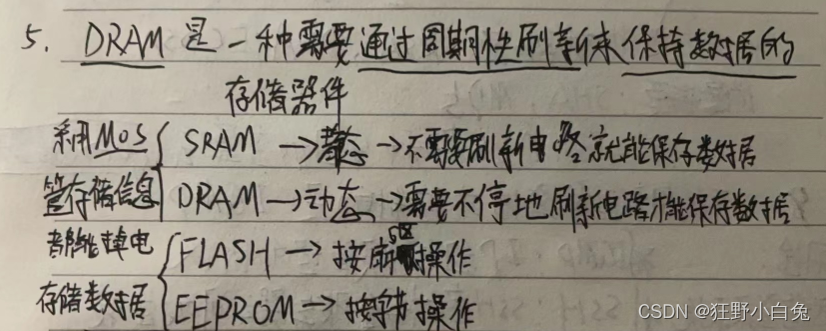 5. DRAM是一种需要通过周期性刷新来保持数据的
存储器件
采用MOS管存储信息
SRAM → 静态 → 不需要刷新电路就能保存数据
DRAM → 动态 → 需要不停地刷新电路才能保存数据
都能掉电存储数据
FLASH → 按扇区操作
EEPROM → 按字节操作
CSDN @狂野小白兔